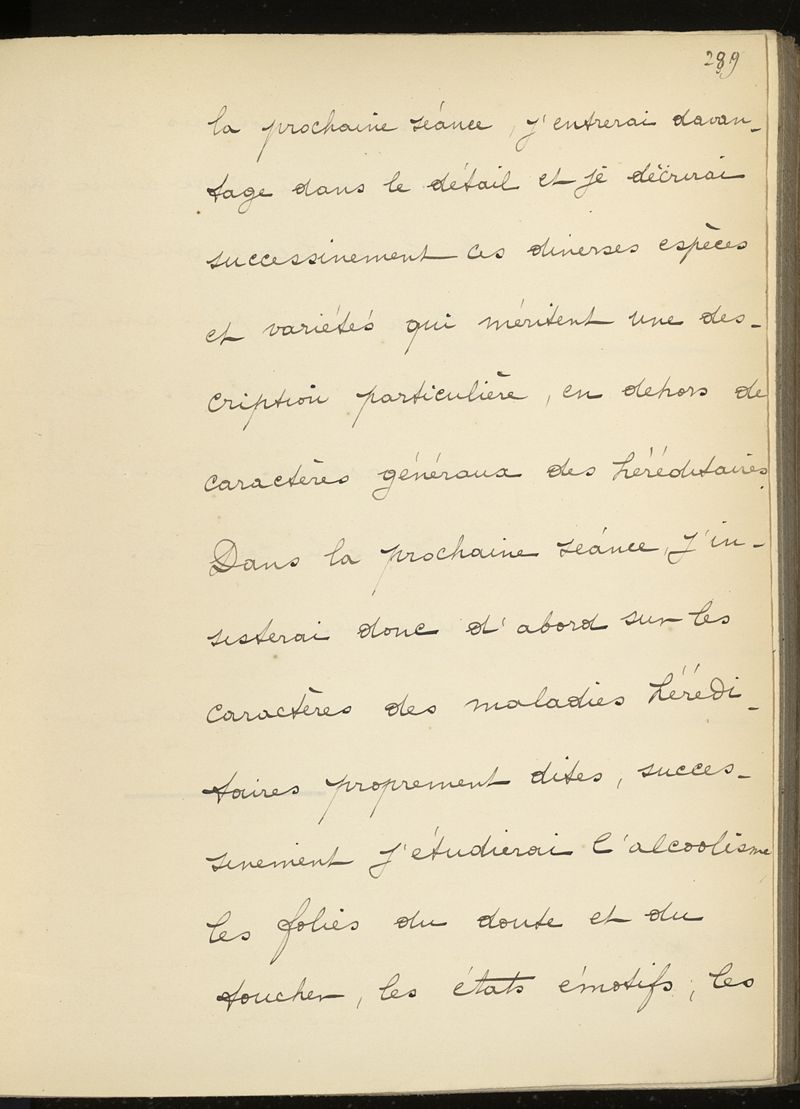 289
la prochaine séance, j'entrerai davan-
tage dans le détail et je décrirai
successivement ces diverses espèces
et variétés qui méritent une des-
cription particulière, en dehors de
caractères généraux des héréditaires.
Dans la prochaine séance, j'in-
sisterai donc d'abord sur les
caractères des maladies hérédi-
taires proprement dites, succes-
sivement j'étudierai l'alcoolisme,
les folies du doute et du
toucher, les états émotifs, les